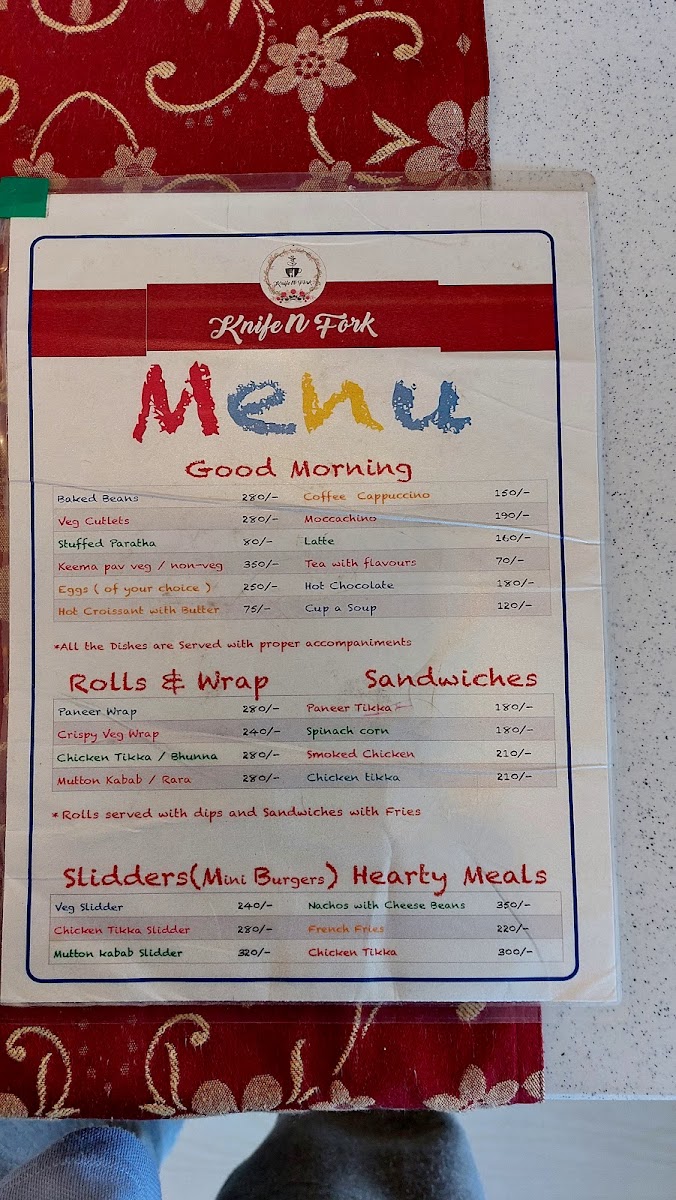 Knife N Fork
Knife N Fork
Menu
Good Morning
Baked Beans 280/- Coffee Cappuccino 150/-
Veg Cutlets 280/- Moccachino 190/-
Stuffed Paratha 80/- Latte 160/-
Keema pav veg / non-veg 350/- Tea with flavours 70/-
Eggs ( of your choice ) 250/- Hot Chocolate 180/-
Hot Croissant with Butter 75/- Cup a Soup 120/-
*All the Dishes are Served with proper accompaniments
Rolls & Wrap Sandwiches
Paneer Wrap 280/- Paneer Tikka 180/-
Crispy Veg Wrap 240/- Spinach corn 180/-
Chicken Tikka / Bhunna 280/- Smoked Chicken 210/-
Mutton Kabab / Rara 280/- Chicken tikka 210/-
* Rolls served with dips and Sandwiches with Fries
Slidders(Mini Burgers) Hearty Meals
Veg Slidder 240/- Nachos with Cheese Beans 350/-
Chicken Tikka Slidder 280/- French Fries 220/-
Mutton kabab Slidder 320/- Chicken Tikka 300/-